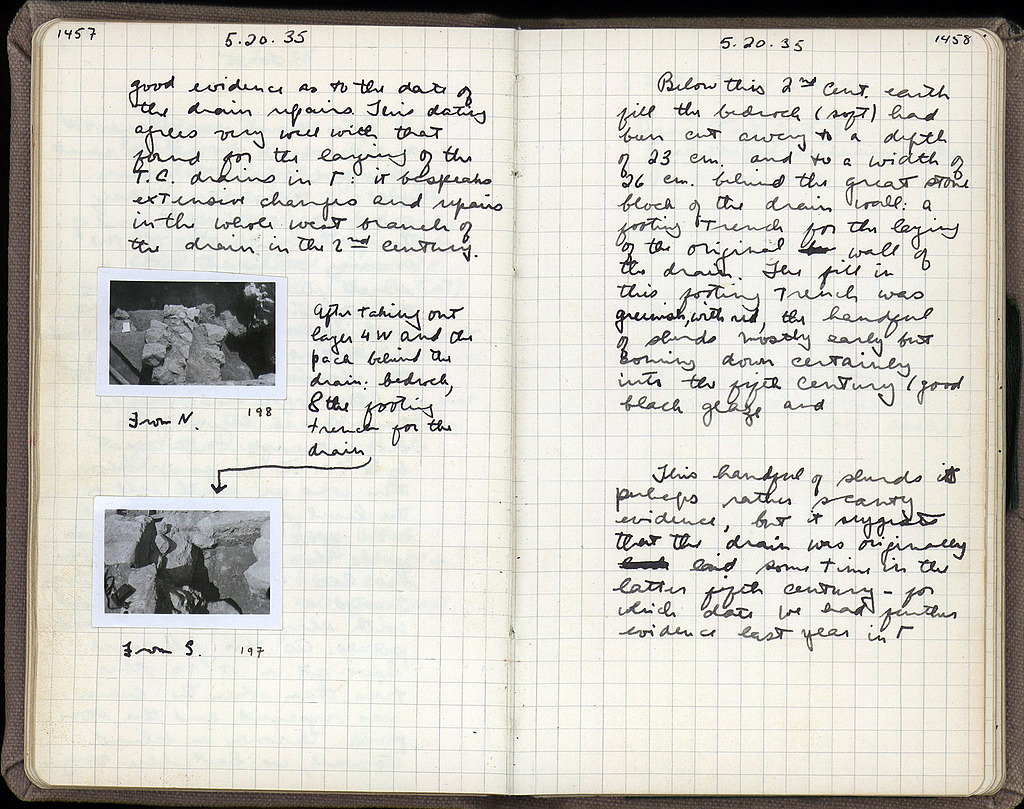 1457
5.20.35
good evidence as to the date of
the drain repairs. This dating
agrees very well with that
found for the laying of the
T.C. drains in Γ: it bespeaks
extensive changes and repairs
in the whole west branch of
the drain in the 2nd century.
After taking out
layer 4W and the
pack behind the
drain: bedrock,
& the footing
trench for the
drain
From N.
198
From S.
197
5.20.35
1458
Below this 2nd cent. earth
fill the bedrock (soft) had
been cut away to a depth
of 23 cm. and to a width of
26 cm. behind the great stone
block of the drain wall: a
footing trench for the laying
of the original wall of
the drain. The fill in
this footing trench was
greenish, with red, the handful
of sherds mostly early but
coming down certainly
into the fifth century (good
black glaze and
This handful of sherds is
perhaps rather scanty
evidence, but it suggests
that the drain was originally
laid some time in the
latter fifth century - for
which date we had further
evidence last year in Γ